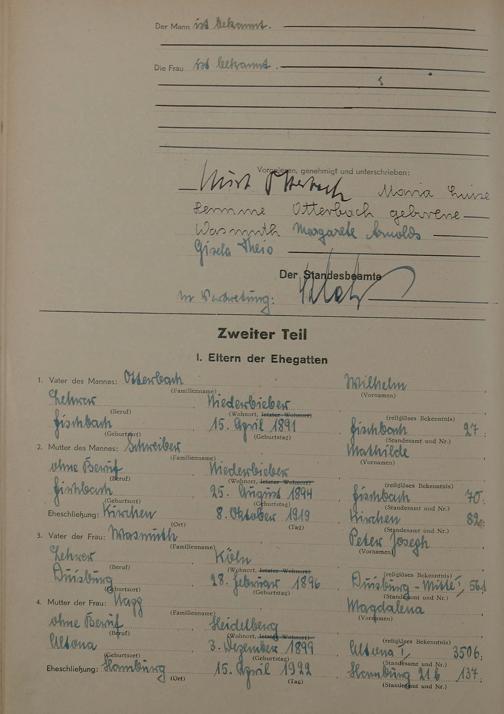 Der Mann ist bekannt.
Die Frau ist bekannt.
Vorgelesen, genehmigt und unterschrieben:
Otterbach Maria Luise
Otterbach geborene
Wasmuth Margarete Arnolds
Gisela Theis
Der Standesbeamte
In Vertretung:
Zweiter Teil
I. Eltern der Ehegatten
1. Vater des Mannes: Otterbach Wilhelm
(Familienname) (Vornamen)
Lehrer Niederbieber
(Beruf) (Wohnort, letzter Wohnort) (religiöses Bekenntnis)
Fischbach 15. April 1891 Fischbach 27.
(Geburtsort) (Geburtstag) (Standesamt und Nr.)
2. Mutter des Mannes: Schreiber Mathilde
(Familienname) (Vornamen)
ohne Beruf Niederbieber
(Beruf) (Wohnort, letzter Wohnort) (religiöses Bekenntnis)
Fischbach 25. August 1894 Fischbach 70.
(Geburtsort) (Geburtstag) (Standesamt und Nr.)
Eheschließung: Kirchen 8. Oktober 1919 Kirchen 82.
(Ort) (Tag) (Standesamt und Nr.)
3. Vater der Frau: Wasmuth Peter Joseph
(Familienname) (Vornamen)
Lehrer Köln
(Beruf) (Wohnort, letzter Wohnort) (religiöses Bekenntnis)
Duisburg 28. Februar 1896 Duisburg-Mitte I, 561
(Geburtsort) (Geburtstag) (Standesamt und Nr.)
4. Mutter der Frau: Magdalena
(Familienname) (Vornamen)
ohne Beruf Heidelberg
(Beruf) (Wohnort, letzter Wohnort) (religiöses Bekenntnis)
Altona 3. Dezember 1899 Altona I, 3506.
(Geburtsort) (Geburtstag) (Standesamt und Nr.)
Eheschließung: Hamburg 15. April 1922 Hamburg 21b 137.
(Ort) (Tag) (Standesamt und Nr.)